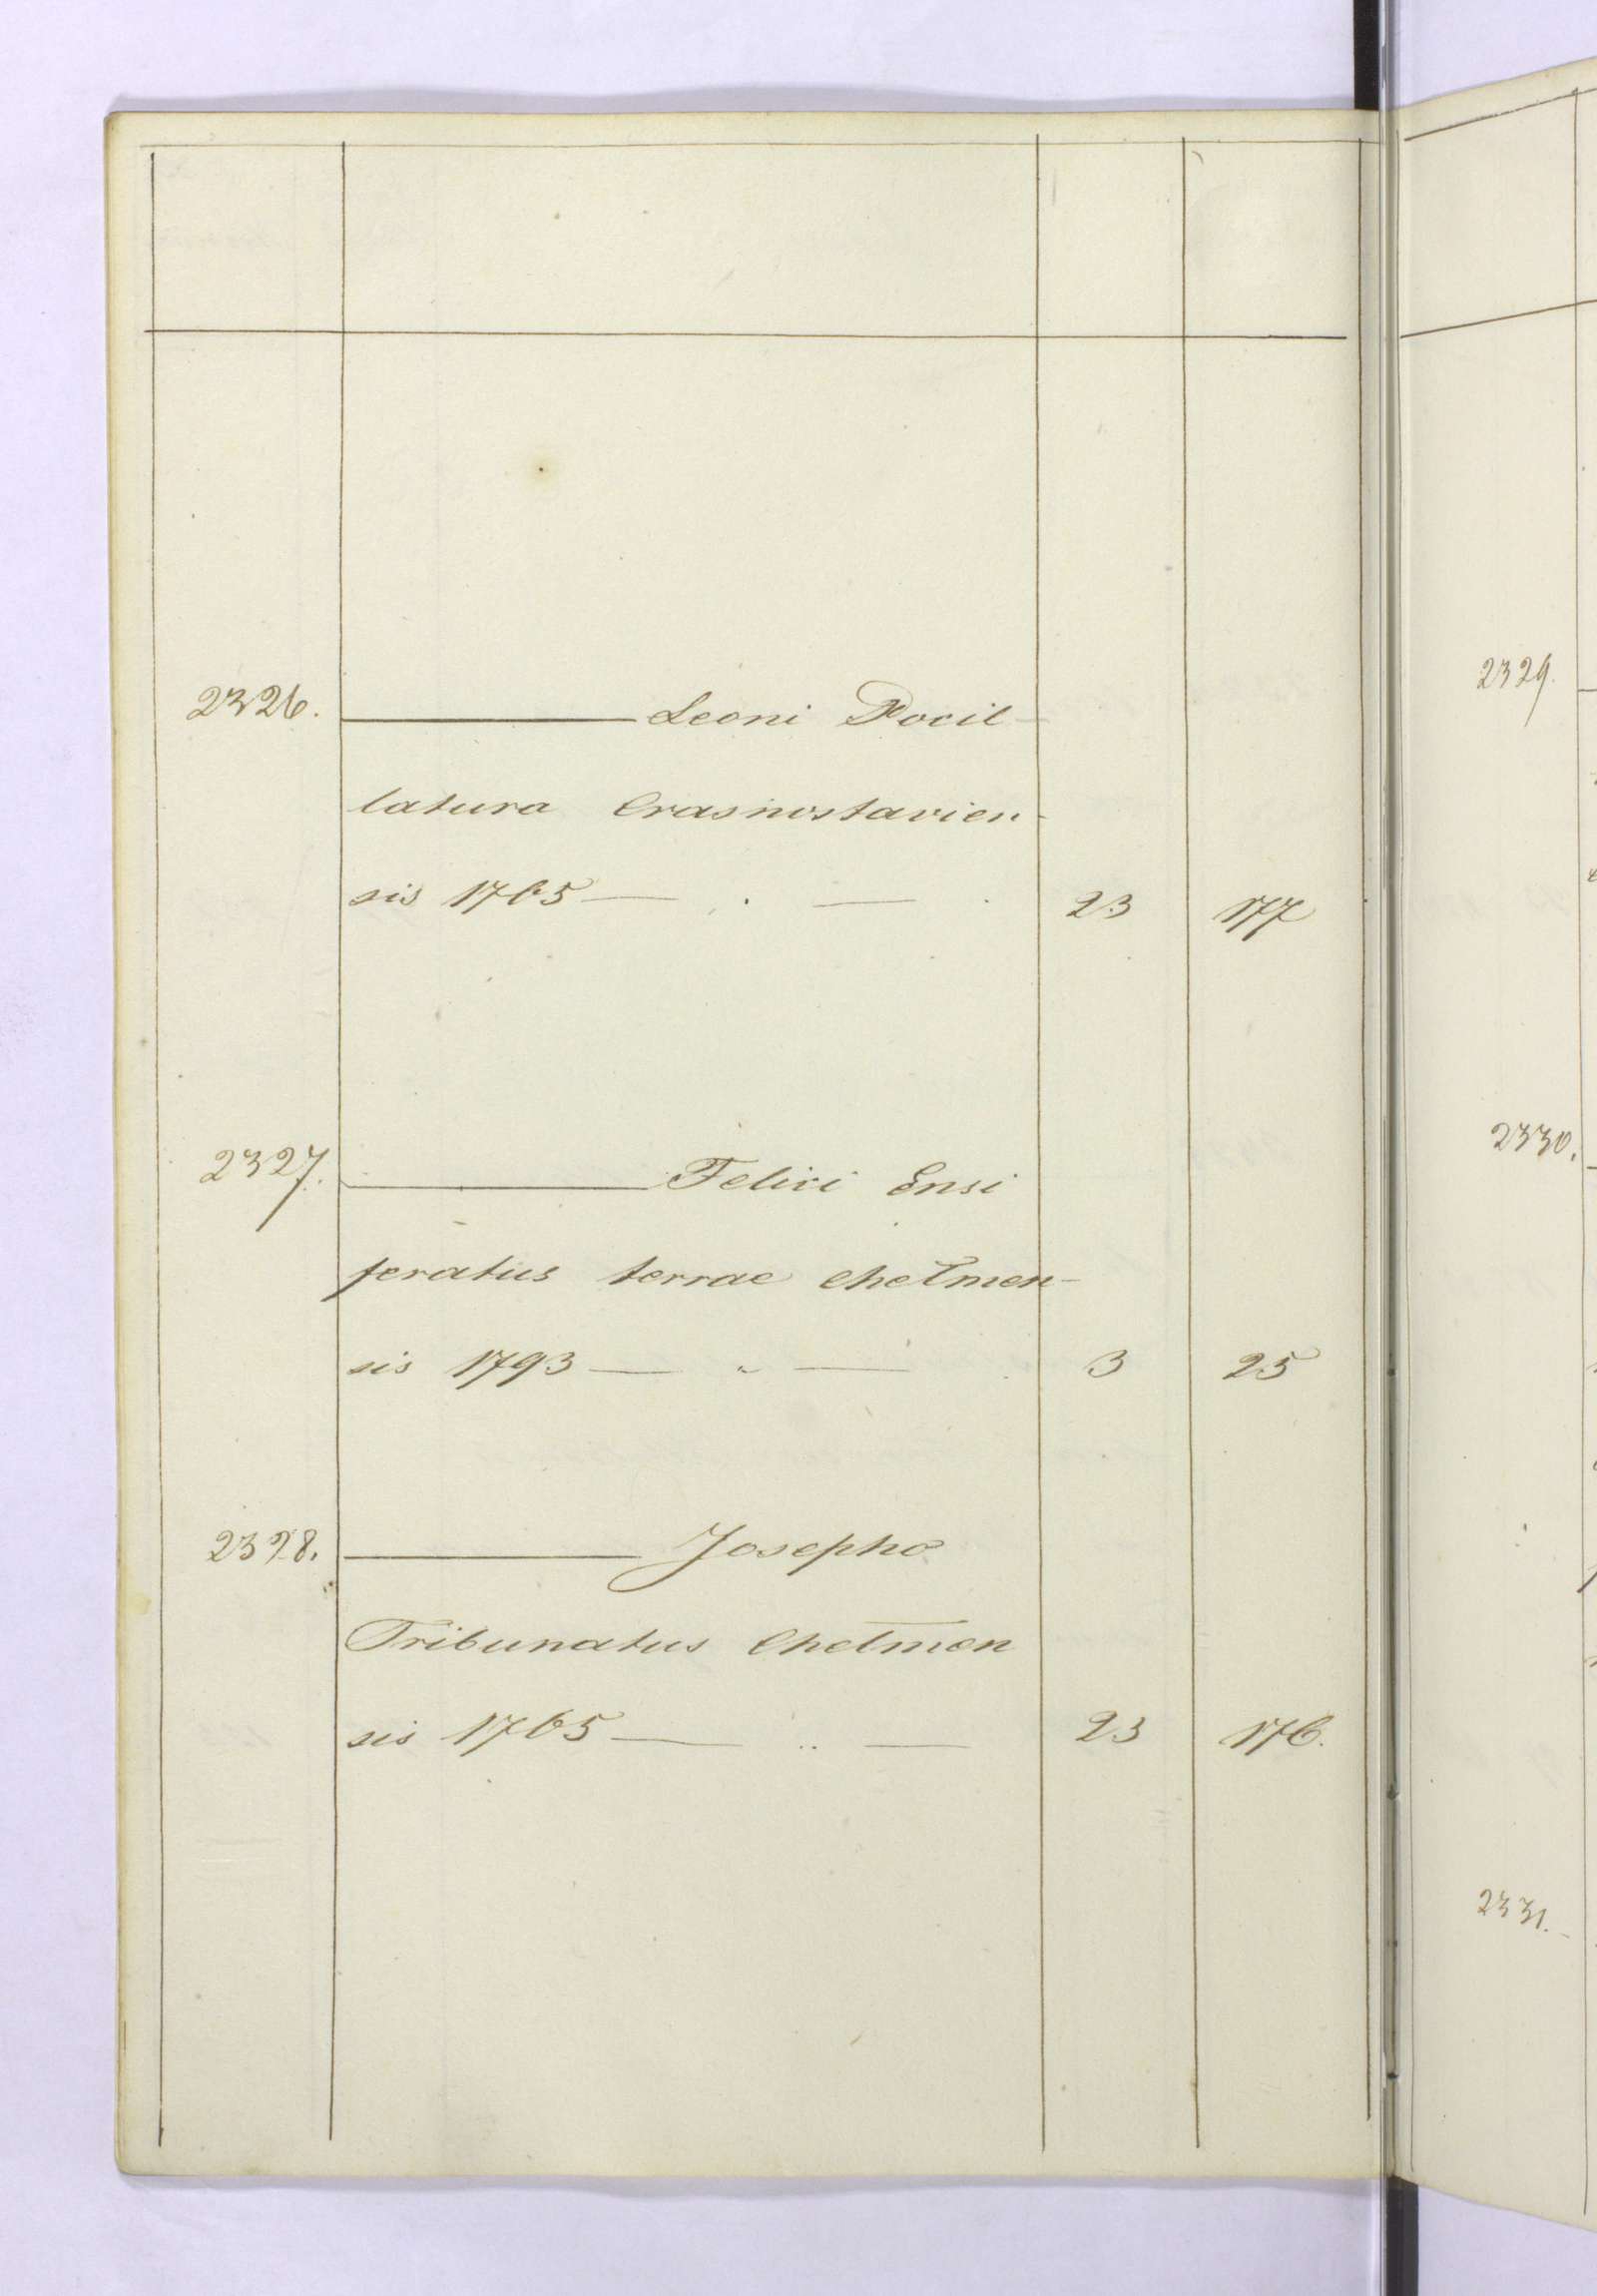 2326. ——— Leoni Pocil-
latura Crasnostavien-
sis 1765 — . — 23 177
2327. ——— Felici Ensi
feratus terrae Chełmen-
sis 1793 — " — 3 25
2328. ——— Josepho
Tribunatus Chełmen
sis 1765 — " — 23 176.
2329.
2330.
2331.